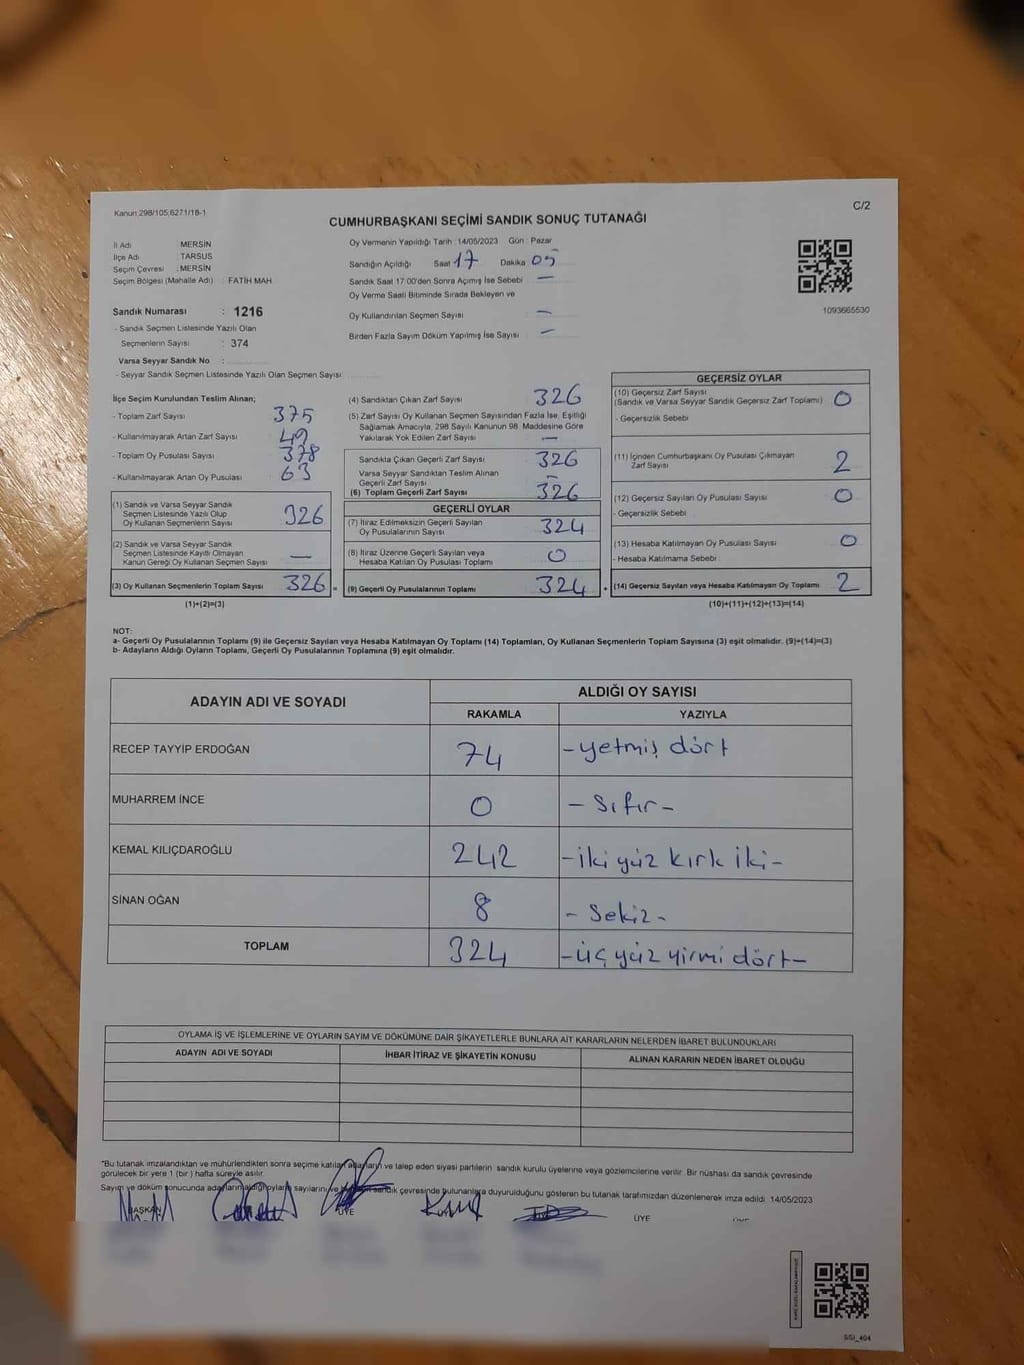 Kanun:298/105;6271/18-1
C/2
CUMHURBAŞKANI SEÇİMİ SANDIK SONUÇ TUTANAĞI
İl Adı MERSİN
İlçe Adı TARSUS
Seçim Çevresi : MERSİN
Seçim Bölgesi (Mahalle Adı) : FATİH MAH
Sandık Numarası : 1216
- Sandık Seçmen Listesinde Yazılı Olan
Seçmenlerin Sayısı : 374
Varsa Seyyar Sandık No :
- Seyyar Sandık Seçmen Listesinde Yazılı Olan Seçmen Sayısı
Oy Vermenin Yapıldığı Tarih :14/05/2023 Gün : Pazar
Sandığın Açıldığı Saat 17 Dakika 05
Sandık Saat 17:00'den Sonra Açılmış İse Sebebi —
Oy Verme Saati Bitiminde Sırada Bekleyen ve
Oy Kullandırılan Seçmen Sayısı —
Birden Fazla Sayım Döküm Yapılmış İse Sayısı —
1093665530
İlçe Seçim Kurulundan Teslim Alınan;
- Toplam Zarf Sayısı 375
- Kullanılmayarak Artan Zarf Sayısı 49
- Toplam Oy Pusulası Sayısı 378
- Kullanılmayarak Artan Oy Pusulası 63
(1) Sandık ve Varsa Seyyar Sandık
Seçmen Listesinde Yazılı Olup
Oy Kullanan Seçmenlerin Sayısı 326
(2) Sandık ve Varsa Seyyar Sandık
Seçmen Listesinde Kayıtlı Olmayan
Kanun Gereği Oy Kullanan Seçmen Sayısı —
(3) Oy Kullanan Seçmenlerin Toplam Sayısı 326 =
(1)+(2)=(3)
(4) Sandıktan Çıkan Zarf Sayısı 326
(5) Zarf Sayısı Oy Kullanan Seçmen Sayısından Fazla İse, Eşitliği
Sağlamak Amacıyla, 298 Sayılı Kanunun 98. Maddesine Göre
Yakılarak Yok Edilen Zarf Sayısı —
Sandıkta Çıkan Geçerli Zarf Sayısı 326
Varsa Seyyar Sandıktan Teslim Alınan
Geçerli Zarf Sayısı —
(6) Toplam Geçerli Zarf Sayısı 326
GEÇERLİ OYLAR
(7) İtiraz Edilmeksizin Geçerli Sayılan
Oy Pusulalarının Sayısı 324
(8) İtiraz Üzerine Geçerli Sayılan veya
Hesaba Katılan Oy Pusulası Toplamı 0
(9) Geçerli Oy Pusulalarının Toplamı 324 +
GEÇERSİZ OYLAR
(10) Geçersiz Zarf Sayısı
(Sandık ve Varsa Seyyar Sandık Geçersiz Zarf Toplamı) 0
- Geçersizlik Sebebi :
(11) İçinden Cumhurbaşkanı Oy Pusulası Çıkmayan
Zarf Sayısı 2
(12) Geçersiz Sayılan Oy Pusulası Sayısı 0
- Geçersizlik Sebebi :
(13) Hesaba Katılmayan Oy Pusulası Sayısı 0
- Hesaba Katılmama Sebebi :
(14) Geçersiz Sayılan veya Hesaba Katılmayan Oy Toplamı 2
(10)+(11)+(12)+(13)=(14)
NOT:
a- Geçerli Oy Pusulalarının Toplamı (9) ile Geçersiz Sayılan veya Hesaba Katılmayan Oy Toplamı (14) Toplamları, Oy Kullanan Seçmenlerin Toplam Sayısına (3) eşit olmalıdır. (9)+(14)=(3)
b- Adayların Aldığı Oyların Toplamı, Geçerli Oy Pusulalarının Toplamına (9) eşit olmalıdır.
ADAYIN ADI VE SOYADI
ALDIĞI OY SAYISI
RAKAMLA YAZIYLA
RECEP TAYYİP ERDOĞAN 74 -yetmiş dört
MUHARREM İNCE 0 - Sıfır -
KEMAL KILIÇDAROĞLU 242 -iki yüz kırk iki-
SİNAN OĞAN 8 - Sekiz -
TOPLAM 324 -üç yüz yirmi dört-
OYLAMA İŞ VE İŞLEMLERİNE VE OYLARIN SAYIM VE DÖKÜMÜNE DAİR ŞİKAYETLERLE BUNLARA AİT KARARLARIN NELERDEN İBARET BULUNDUKLARI
ADAYIN ADI VE SOYADI İHBAR İTİRAZ VE ŞİKAYETİN KONUSU ALINAN KARARIN NEDEN İBARET OLDUĞU
*Bu tutanak imzalandıktan ve mühürlendikten sonra seçime katılan adayların ve talep eden siyasi partilerin sandık kurulu üyelerine veya gözlemcilerine verilir. Bir nüshası da sandık çevresinde
görülecek bir yere 1 (bir) hafta süreyle asılır.
Sayım ve döküm sonucunda adayların aldığı oyların sayılarını ve sandık çevresinde bulunanlara duyurulduğunu gösteren bu tutanak tarafımızdan düzenlenerek imza edildi 14/05/2023
BAŞKAN ÜYE ÜYE ÜYE